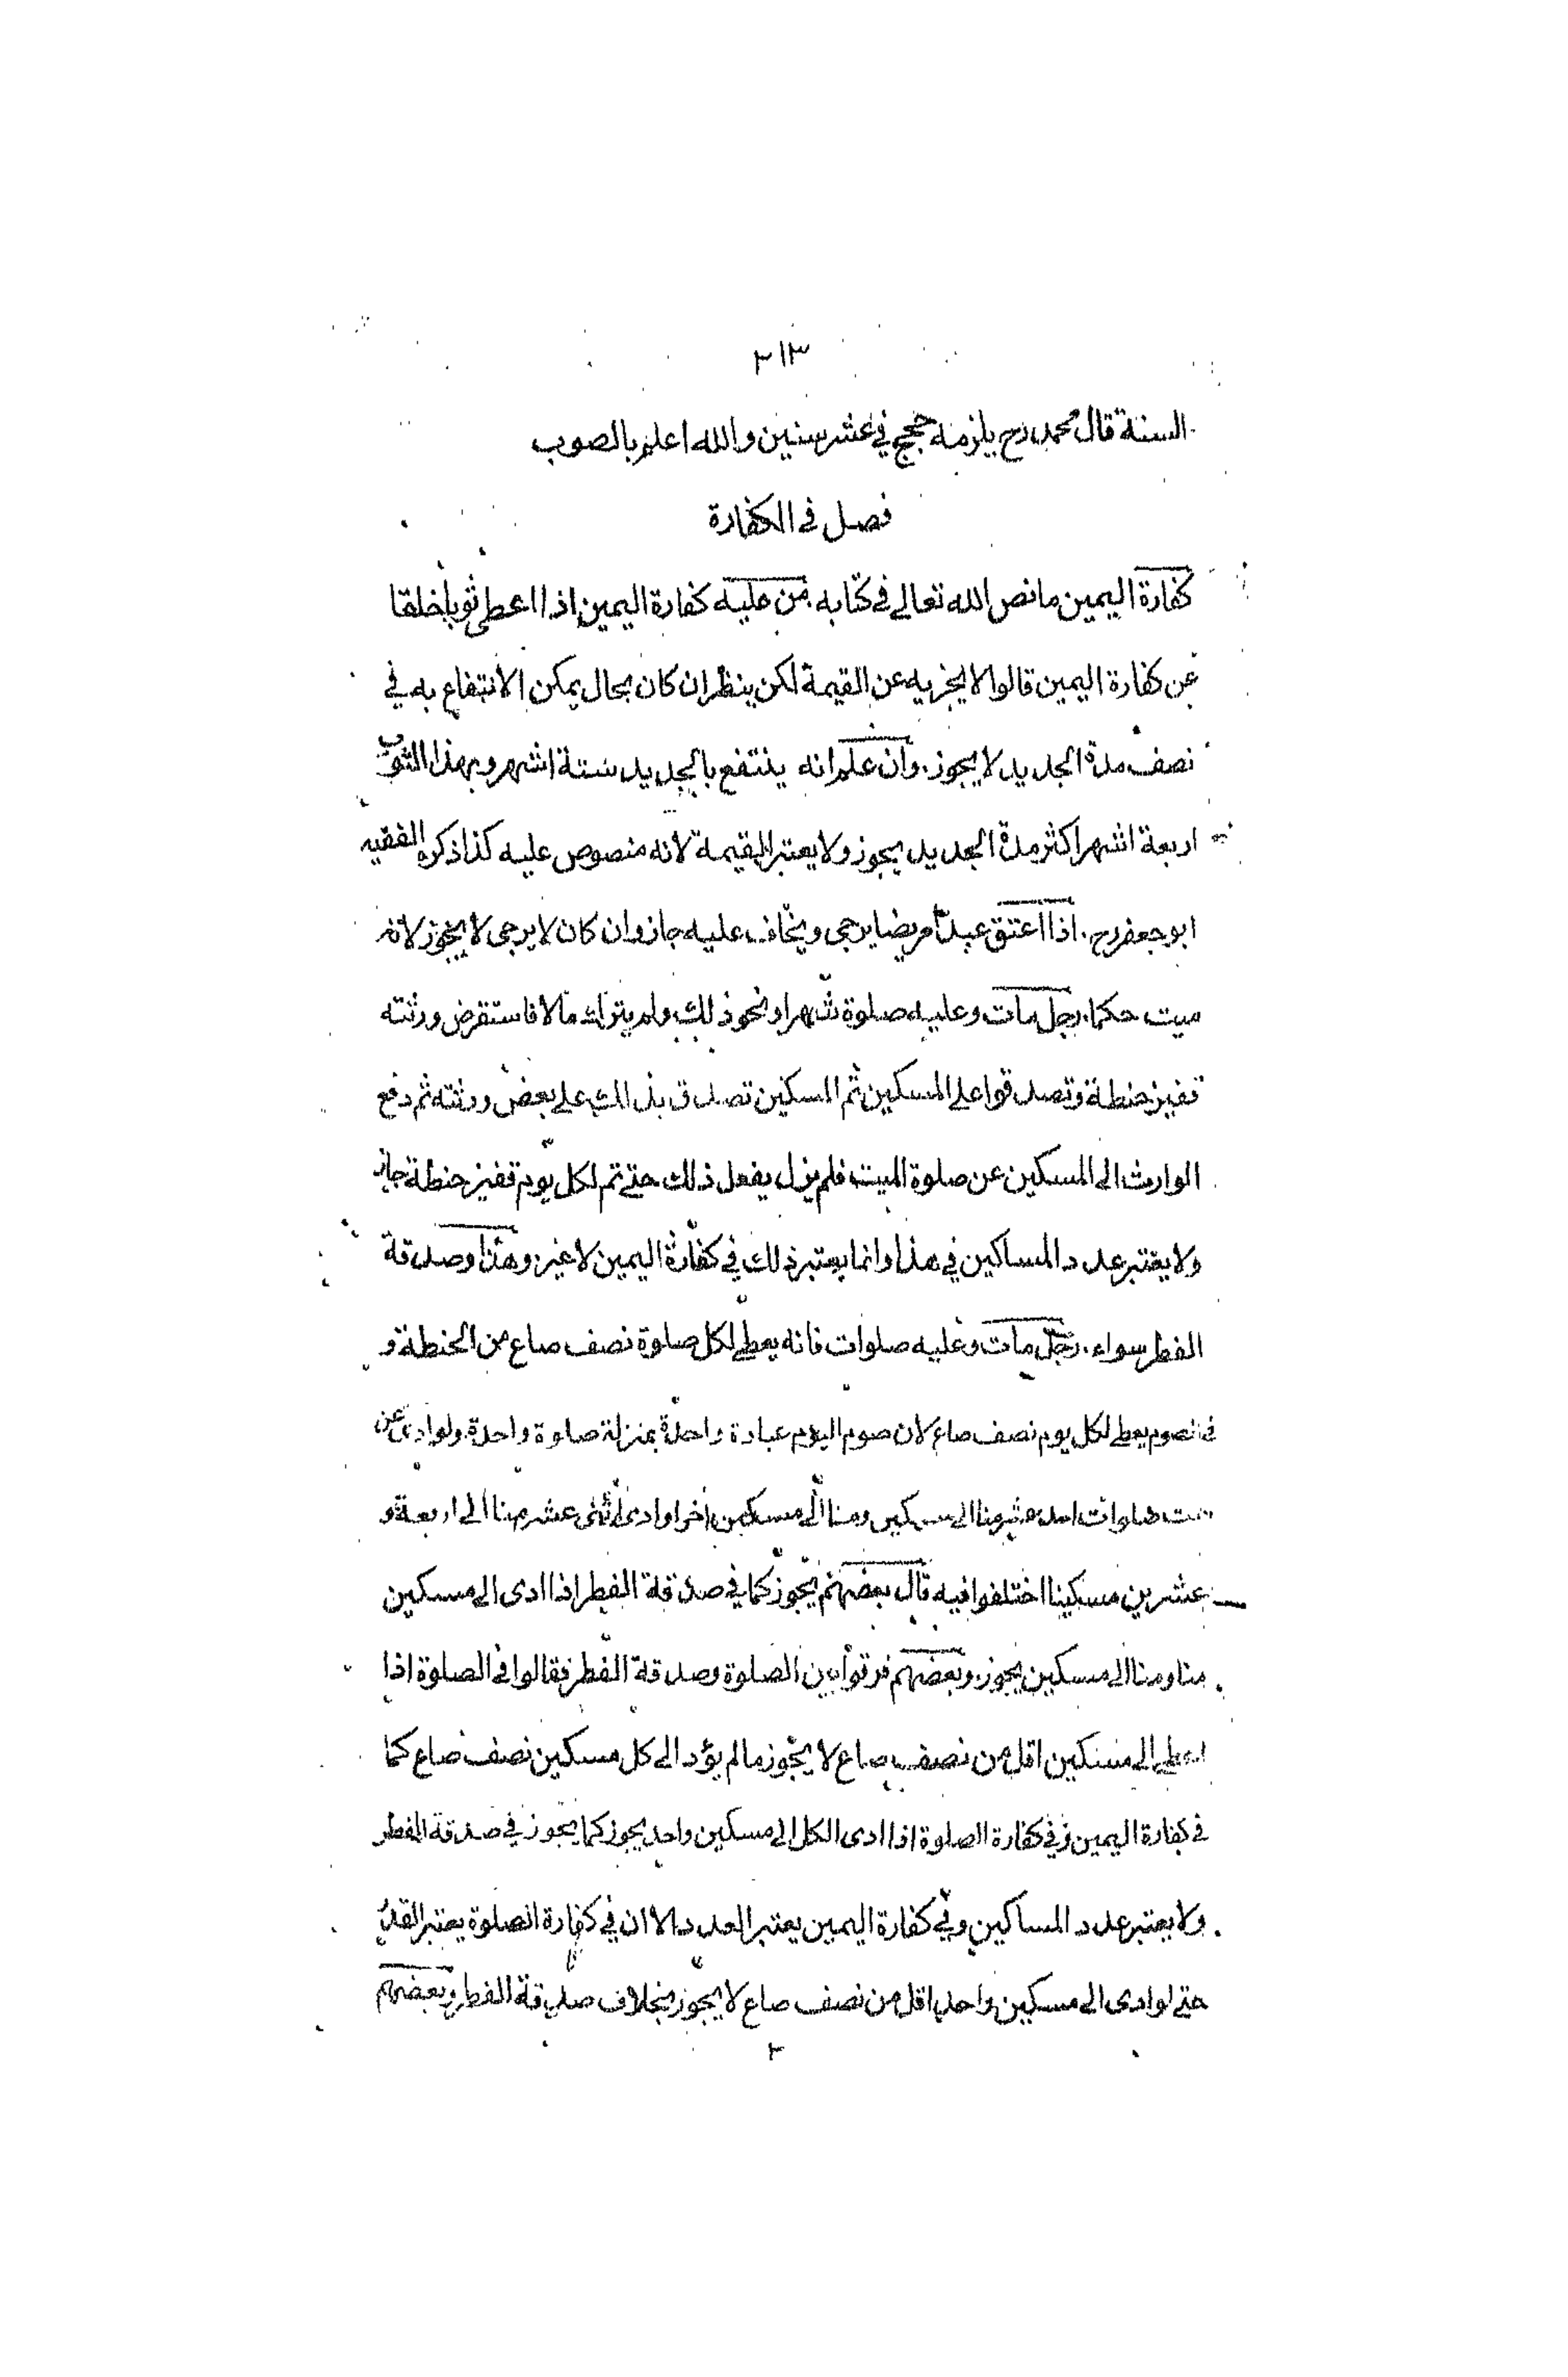 ٣١٣
السنة قال محمد رح يلزمه حجج في عشر سنين والله اعلم بالصوب
فصل فى الكفارة
كفارة اليمين ما نص الله تعالى فى كتابه. من عليه كفارة اليمين اذا اعطى ثوبا خلقا
عن كفارة اليمين قالوا لا يجزيه عن القيمة لكن ينظر ان كان بحال يمكن الانتفاع به في
نصف مدة الجديد لا يجوز. وان علم انه ينتفع بالجديد ستة اشهر وبهذا الثوب
اربعة اشهر اكثر مدة الجديد يجوز ولا يعتبر القيمة لانه منصوص عليه كذا ذكره الفقيه
ابو جعفر رح. اذا اعتق عبدا مريضا يرجى ويخاف عليه جاز وان كان لا يرجى لا يجوز لانه
ميت حكما. رجل مات وعليه صلوة شهر او نحو ذلك ولم يترك مالا فاستقرض ورثته
قفيز حنطة وتصدقوا على المسكين ثم المسكين تصدق بذلك على بعض ورثته ثم دفع
الوارث الى المسكين عن صلوة الميت فلم يزل يفعل ذلك حتى تم لكل يوم قفيز حنطة جاز
ولا يعتبر عدد المساكين في هذا وانما يعتبر ذلك في كفارة اليمين لا غير وهذا وصدقة
الفطر سواء. رجل مات وعليه صلوات فانه يعطى لكل صلوة نصف صاع من الحنطة و
فى الصوم يعطى لكل يوم نصف صاع لان صوم اليوم عبادة واحدة بمنزلة صلوة واحدة. ولو ادى عن
ست صلوات احد عشر منا الى مسكين ومنا الى مسكين اخر او ادى اثنى عشر منا الى اربعة و
عشرين مسكينا اختلفوا فيه قال بعضهم يجوز كما في صدقة الفطر اذا ادى الى مسكين
منا ومنا الى مسكين يجوز. وبعضهم فرقوا بين الصلوة وصدقة الفطر فقالوا فى الصلوة اذا
اعطى الى مسكين اقل من نصف صاع لا يجوز ما لم يؤد الى كل مسكين نصف صاع كما
في كفارة اليمين وفي كفارة الصلوة اذا ادى الكل الى مسكين واحد يجوز كما يجوز في صدقة الفطر
ولا يعتبر عدد المساكين وفي كفارة اليمين يعتبر العدد الا ان في كفارة الصلوة يعتبر القدر
حتى لو ادى الى مسكين واحد اقل من نصف صاع لا يجوز بخلاف صدقة الفطر وبعضهم
٢